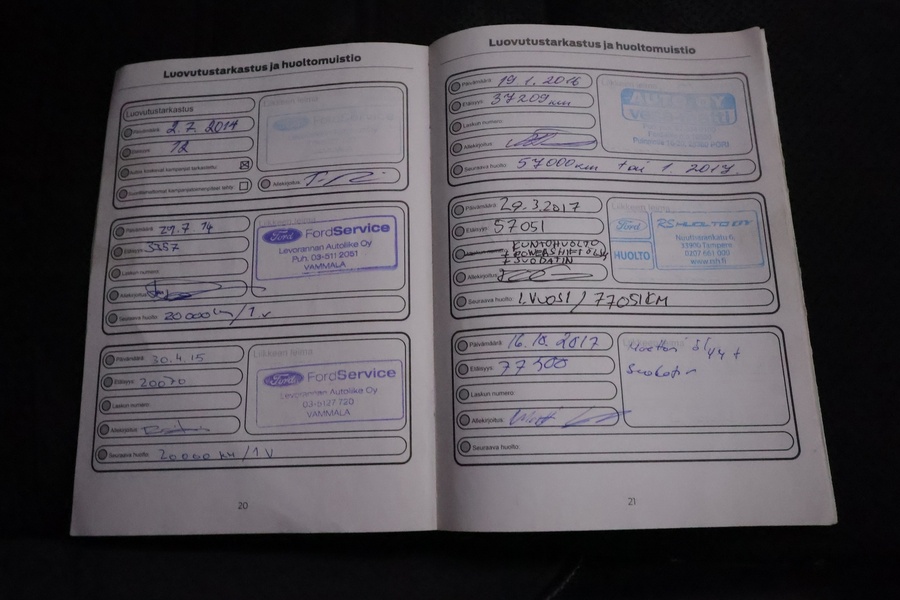 Luovutustarkastus ja huoltomuistio
Luovutustarkastus
Päivämäärä: 2.7.2014
Etäisyys: 12
Allekirjoitus:
Päivämäärä: 29.7 14
Etäisyys: 5257
Laskun numero:
Allekirjoitus:
Seuraava huolto: 20000km/1v
Ford FordService
Levorannan Autoliike Oy
Puh. 03-511 2051
VAMMALA
Päivämäärä: 30.4.15
Etäisyys: 20070
Laskun numero:
Allekirjoitus:
Seuraava huolto: 20000 km/1v
Liikkeen leima
Ford FordService
Levorannan Autoliike Oy
03-5127 720
VAMMALA
20
Luovutustarkastus ja huoltomuistio
Päivämäärä: 19.1.2016
Etäisyys: 37209km
Laskun numero:
Allekirjoitus:
Seuraava huolto: 57000km tai 1.2017
Päivämäärä: 29.3.2017
Etäisyys: 57051
KUNTOHUOLTO
Allekirjoitus:
Seuraava huolto: 1.VUOSI / 77051KM
Ford
HUOLTO
RS HUOLTO OY
33900 Tampere
0207 661 000
Päivämäärä: 16.10.2017
Etäisyys: 77300
Laskun numero:
Allekirjoitus:
Seuraava huolto:
21